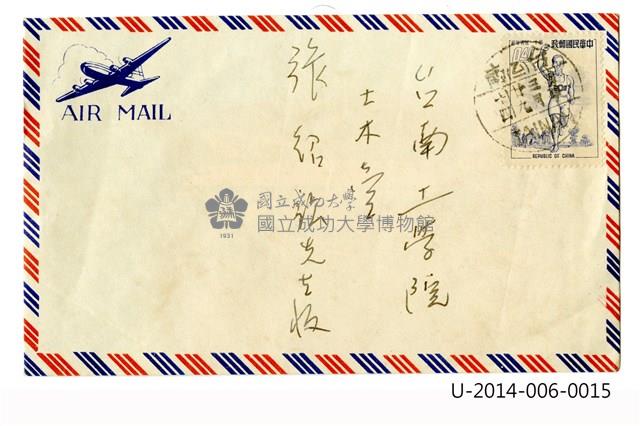 AIR MAIL
中華民國郵政
REPUBLIC OF CHINA
TAIWAN
台南工學院
土木
張紹 先生
國立成功大學
國立成功大學博物館
1931
U-2014-006-0015